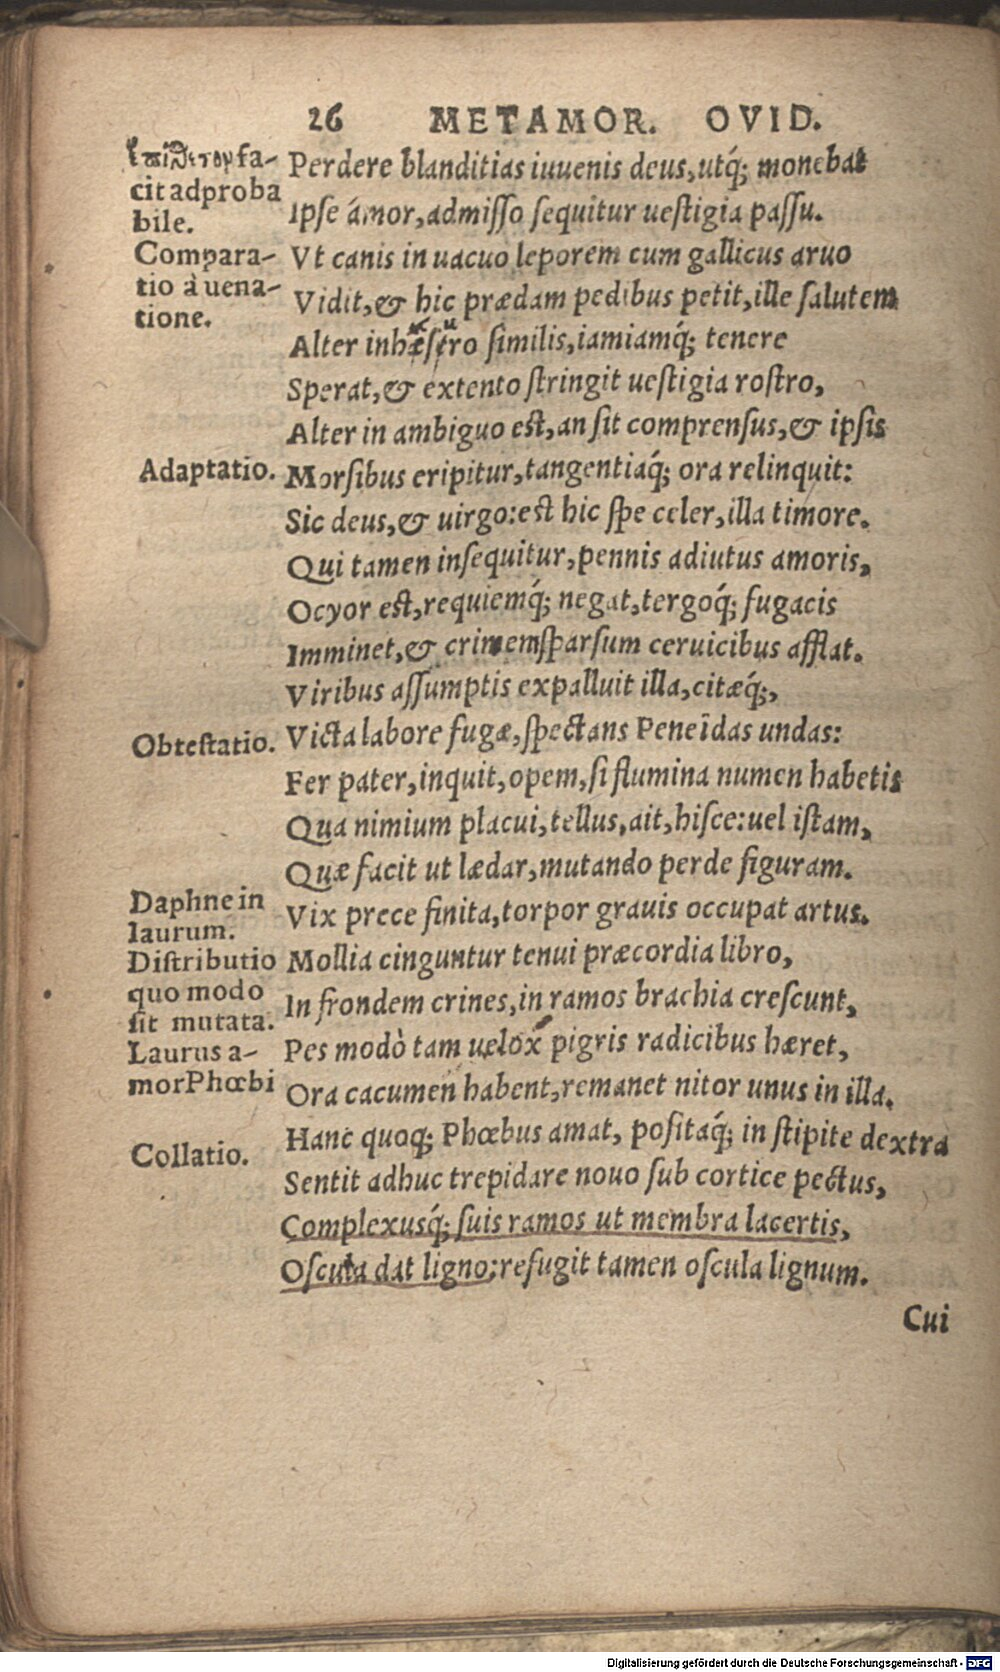 26 METAMOR. OVID.
ἐπίθετον fa-
cit ad proba
bile.
Perdere blanditias iuuenis deus, utq́; monebat
Ipse ámor, admisso sequitur uestigia passu.
Compara-
tio à uena-
tione.
Vt canis in uacuo leporem cum gallicus aruo
Vidit, & hic prædam pedibus petit, ille salutem
Alter inhæsuro similis, iamiamq́; tenere
Sperat, & extento stringit uestigia rostro,
Alter in ambiguo est, an sit comprensus, & ipsis
Adaptatio.
Morsibus eripitur, tangentiaq́; ora relinquit:
Sic deus, & uirgo: est hic spe celer, illa timore.
Qui tamen insequitur, pennis adiutus amoris,
Ocyor est, requiemq́; negat, tergoq́; fugacis
Imminet, & crinem sparsum ceruicibus afflat.
Viribus assumptis expalluit illa, citæq́;,
Obtestatio.
Victa labore fugæ, spectans Peneïdas undas:
Fer pater, inquit, opem, si flumina numen habetis
Qua nimium placui, tellus, ait, hisce: uel istam,
Quæ facit ut lædar, mutando perde figuram.
Daphne in
laurum.
Vix prece finita, torpor grauis occupat artus.
Distributio
quo modo
sit mutata.
Mollia cinguntur tenui præcordia libro,
In frondem crines, in ramos brachia crescunt,
Laurus a-
mor Phœbi
Pes modò tam uelox pigris radicibus hæret,
Ora cacumen habent, remanet nitor unus in illa.
Collatio.
Hanc quoq; Phœbus amat, positaq́; in stipite dextra
Sentit adhuc trepidare nouo sub cortice pectus,
Complexusq́; suis ramos ut membra lacertis,
Oscula dat ligno: refugit tamen oscula lignum.
Cui
Digitalisierung gefördert durch die Deutsche Forschungsgemeinschaft - DFG